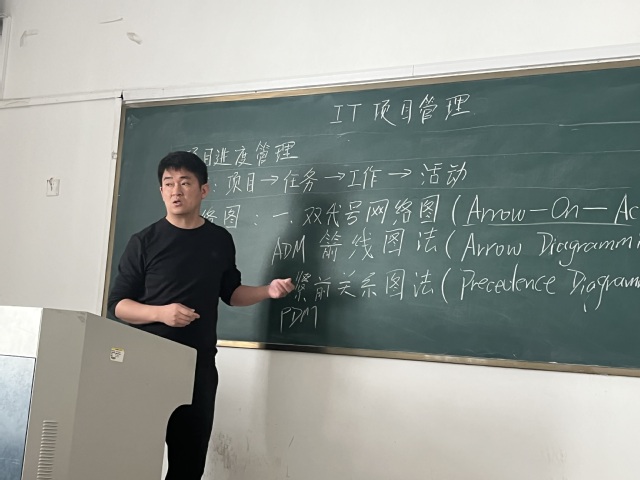 IT 项目管理
项目进度管理
: 项目→任务→工作→活动
络图: 一. 双代号网络图 (Arrow-On-Ac
ADM 箭线图法 (Arrow Diagrammi
紧前关系图法 (Precedence Diagramm
PDM